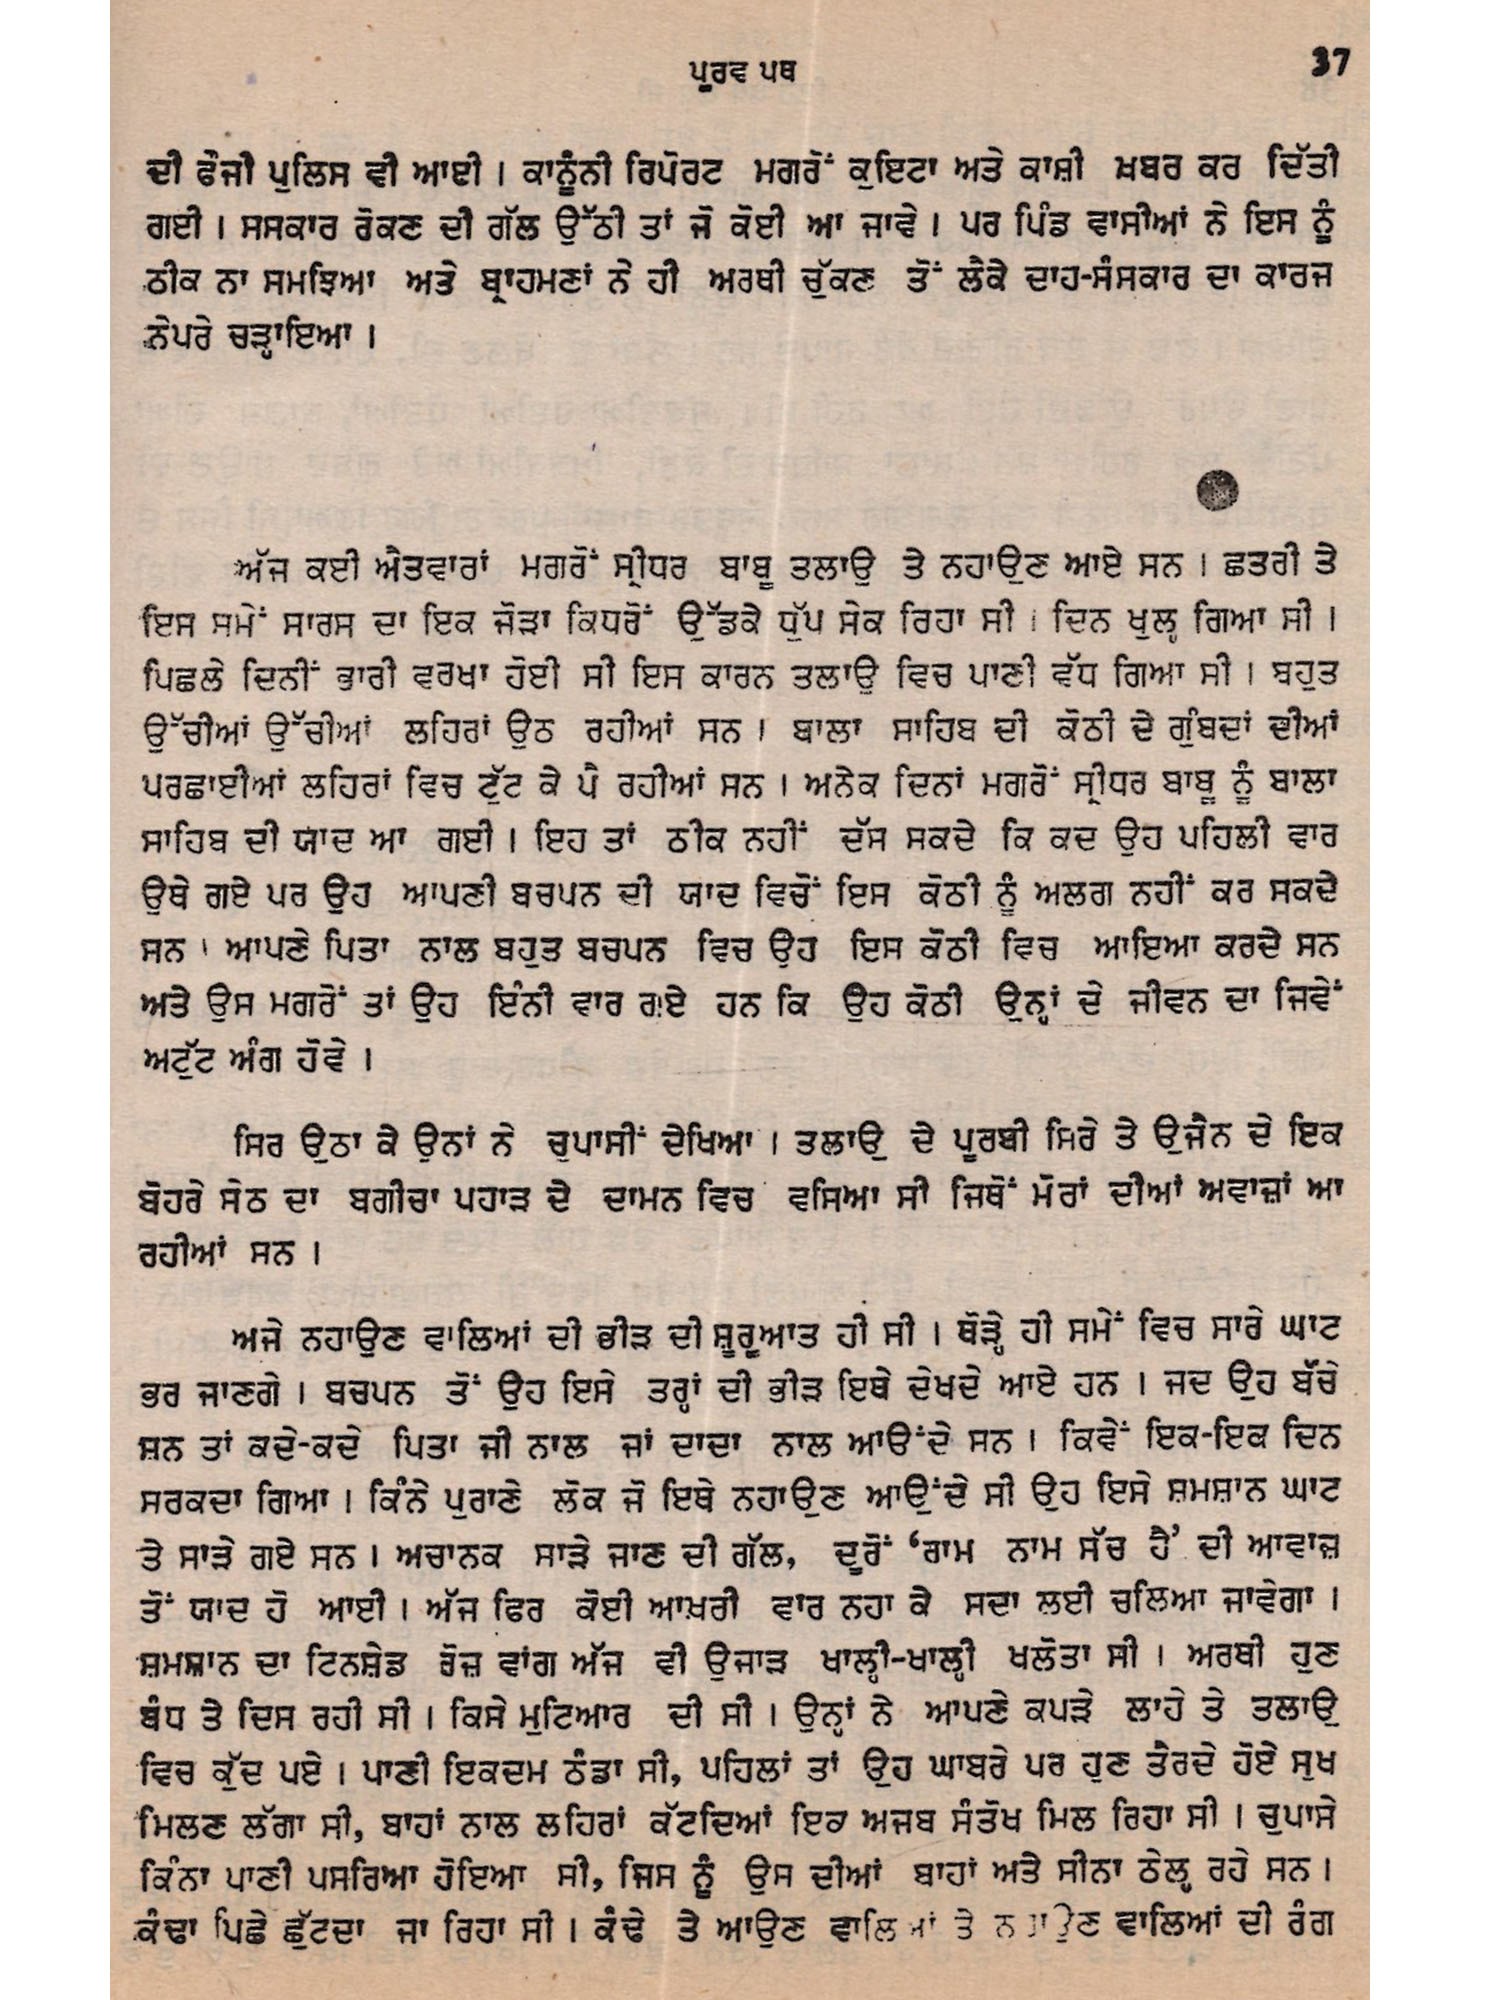 ਪੂਰਵ ਪਥ
37
ਦੀ ਫੌਜੀ ਪੁਲਿਸ ਵੀ ਆਈ । ਕਾਨੂੰਨੀ ਰਿਪੋਰਟ ਮਗਰੋਂ ਕੁਇਟਾ ਅਤੇ ਕਾਸ਼ੀ ਖ਼ਬਰ ਕਰ ਦਿੱਤੀ
ਗਈ । ਸਸਕਾਰ ਰੋਕਣ ਦੀ ਗੱਲ ਉੱਠੀ ਤਾਂ ਜੋ ਕੋਈ ਆ ਜਾਵੇ । ਪਰ ਪਿੰਡ ਵਾਸੀਆਂ ਨੇ ਇਸ ਨੂੰ
ਠੀਕ ਨਾ ਸਮਝਿਆ ਅਤੇ ਬ੍ਰਾਹਮਣਾਂ ਨੇ ਹੀ ਅਰਥੀ ਚੁੱਕਣ ਤੋਂ ਲੈਕੇ ਦਾਹ-ਸੰਸਕਾਰ ਦਾ ਕਾਰਜ
ਨੇਪਰੇ ਚੜ੍ਹਾਇਆ ।
ਅੱਜ ਕਈ ਐਤਵਾਰਾਂ ਮਗਰੋਂ ਸ੍ਰੀਧਰ ਬਾਬੂ ਤਲਾਉ ਤੇ ਨਹਾਉਣ ਆਏ ਸਨ । ਛਤਰੀ ਤੇ
ਇਸ ਸਮੇਂ ਸਾਰਸ ਦਾ ਇਕ ਜੋੜਾ ਕਿਧਰੋਂ ਉੱਡਕੇ ਧੁੱਪ ਸੇਕ ਰਿਹਾ ਸੀ । ਦਿਨ ਖੁਲ੍ਹ ਗਿਆ ਸੀ ।
ਪਿਛਲੇ ਦਿਨੀਂ ਭਾਰੀ ਵਰਖਾ ਹੋਈ ਸੀ ਇਸ ਕਾਰਨ ਤਲਾਉ ਵਿਚ ਪਾਣੀ ਵੱਧ ਗਿਆ ਸੀ । ਬਹੁਤ
ਉੱਚੀਆਂ ਉੱਚੀਆਂ ਲਹਿਰਾਂ ਉਠ ਰਹੀਆਂ ਸਨ । ਬਾਲਾ ਸਾਹਿਬ ਦੀ ਕੋਠੀ ਦੇ ਗੁੰਬਦਾਂ ਦੀਆਂ
ਪਰਛਾਈਆਂ ਲਹਿਰਾਂ ਵਿਚ ਟੁੱਟ ਕੇ ਪੈ ਰਹੀਆਂ ਸਨ । ਅਨੇਕ ਦਿਨਾਂ ਮਗਰੋਂ ਸ੍ਰੀਧਰ ਬਾਬੂ ਨੂੰ ਬਾਲਾ
ਸਾਹਿਬ ਦੀ ਯਾਦ ਆ ਗਈ । ਇਹ ਤਾਂ ਠੀਕ ਨਹੀਂ ਦੱਸ ਸਕਦੇ ਕਿ ਕਦ ਉਹ ਪਹਿਲੀ ਵਾਰ
ਉਥੇ ਗਏ ਪਰ ਉਹ ਆਪਣੀ ਬਚਪਨ ਦੀ ਯਾਦ ਵਿਚੋਂ ਇਸ ਕੋਠੀ ਨੂੰ ਅਲਗ ਨਹੀਂ ਕਰ ਸਕਦੇ
ਸਨ । ਆਪਣੇ ਪਿਤਾ ਨਾਲ ਬਹੁਤ ਬਚਪਨ ਵਿਚ ਉਹ ਇਸ ਕੋਠੀ ਵਿਚ ਆਇਆ ਕਰਦੇ ਸਨ
ਅਤੇ ਉਸ ਮਗਰੋਂ ਤਾਂ ਉਹ ਇੰਨੀ ਵਾਰ ਗਏ ਹਨ ਕਿ ਉਹ ਕੋਠੀ ਉਨ੍ਹਾਂ ਦੇ ਜੀਵਨ ਦਾ ਜਿਵੇਂ
ਅਟੁੱਟ ਅੰਗ ਹੋਵੇ ।
ਸਿਰ ਉਠਾ ਕੇ ਉਨਾਂ ਨੇ ਚੁਪਾਸੀਂ ਦੇਖਿਆ । ਤਲਾਉ ਦੇ ਪੂਰਬੀ ਸਿਰੇ ਤੇ ਉਜੈਨ ਦੇ ਇਕ
ਬੋਹਰੇ ਸੇਠ ਦਾ ਬਗੀਚਾ ਪਹਾੜ ਦੇ ਦਾਮਨ ਵਿਚ ਵਸਿਆ ਸੀ ਜਿਥੋਂ ਮੋਰਾਂ ਦੀਆਂ ਅਵਾਜ਼ਾਂ ਆ
ਰਹੀਆਂ ਸਨ ।
ਅਜੇ ਨਹਾਉਣ ਵਾਲਿਆਂ ਦੀ ਭੀੜ ਦੀ ਸ਼ੁਰੂਆਤ ਹੀ ਸੀ । ਥੋੜ੍ਹੇ ਹੀ ਸਮੇਂ ਵਿਚ ਸਾਰੇ ਘਾਟ
ਭਰ ਜਾਣਗੇ । ਬਚਪਨ ਤੋਂ ਉਹ ਇਸੇ ਤਰ੍ਹਾਂ ਦੀ ਭੀੜ ਇਥੇ ਦੇਖਦੇ ਆਏ ਹਨ । ਜਦ ਉਹ ਬੱਚੇ
ਸ਼ਨ ਤਾਂ ਕਦੇ-ਕਦੇ ਪਿਤਾ ਜੀ ਨਾਲ ਜਾਂ ਦਾਦਾ ਨਾਲ ਆਉਂਦੇ ਸਨ । ਕਿਵੇਂ ਇਕ-ਇਕ ਦਿਨ
ਸਰਕਦਾ ਗਿਆ । ਕਿੰਨੇ ਪੁਰਾਣੇ ਲੋਕ ਜੋ ਇਥੇ ਨਹਾਉਣ ਆਉਂਦੇ ਸੀ ਉਹ ਇਸੇ ਸ਼ਮਸ਼ਾਨ ਘਾਟ
ਤੇ ਸਾੜੇ ਗਏ ਸਨ । ਅਚਾਨਕ ਸਾੜੇ ਜਾਣ ਦੀ ਗੱਲ, ਦੂਰੋਂ ‘ਰਾਮ ਨਾਮ ਸੱਚ ਹੈ’ ਦੀ ਆਵਾਜ਼
ਤੋਂ ਯਾਦ ਹੋ ਆਈ । ਅੱਜ ਫਿਰ ਕੋਈ ਆਖ਼ਰੀ ਵਾਰ ਨਹਾ ਕੇ ਸਦਾ ਲਈ ਚਲਿਆ ਜਾਵੇਗਾ ।
ਸ਼ਮਸ਼ਾਨ ਦਾ ਟਿਨਸ਼ੇਡ ਰੋਜ਼ ਵਾਂਗ ਅੱਜ ਵੀ ਉਜਾੜ ਖਾਲ੍ਹੀ-ਖਾਲ੍ਹੀ ਖਲੋਤਾ ਸੀ । ਅਰਥੀ ਹੁਣ
ਬੰਧ ਤੇ ਦਿਸ ਰਹੀ ਸੀ । ਕਿਸੇ ਮੁਟਿਆਰ ਦੀ ਸੀ । ਉਨ੍ਹਾਂ ਨੇ ਆਪਣੇ ਕਪੜੇ ਲਾਹੇ ਤੇ ਤਲਾਉ
ਵਿਚ ਕੁੱਦ ਪਏ । ਪਾਣੀ ਇਕਦਮ ਠੰਡਾ ਸੀ, ਪਹਿਲਾਂ ਤਾਂ ਉਹ ਘਾਬਰੇ ਪਰ ਹੁਣ ਤੈਰਦੇ ਹੋਏ ਸੁਖ
ਮਿਲਣ ਲੱਗਾ ਸੀ, ਬਾਹਾਂ ਨਾਲ ਲਹਿਰਾਂ ਕੱਟਦਿਆਂ ਇਕ ਅਜਬ ਸੰਤੋਖ ਮਿਲ ਰਿਹਾ ਸੀ । ਚੁਪਾਸੇ
ਕਿੰਨਾ ਪਾਣੀ ਪਸਰਿਆ ਹੋਇਆ ਸੀ, ਜਿਸ ਨੂੰ ਉਸ ਦੀਆਂ ਬਾਹਾਂ ਅਤੇ ਸੀਨਾ ਠੇਲ੍ਹ ਰਹੇ ਸਨ ।
ਕੰਢਾ ਪਿਛੇ ਛੁੱਟਦਾ ਜਾ ਰਿਹਾ ਸੀ । ਕੰਢੇ ਤੇ ਆਉਣ ਵਾਲਿਆਂ ਤੇ ਨਹਾਉਣ ਵਾਲਿਆਂ ਦੀ ਰੰਗ